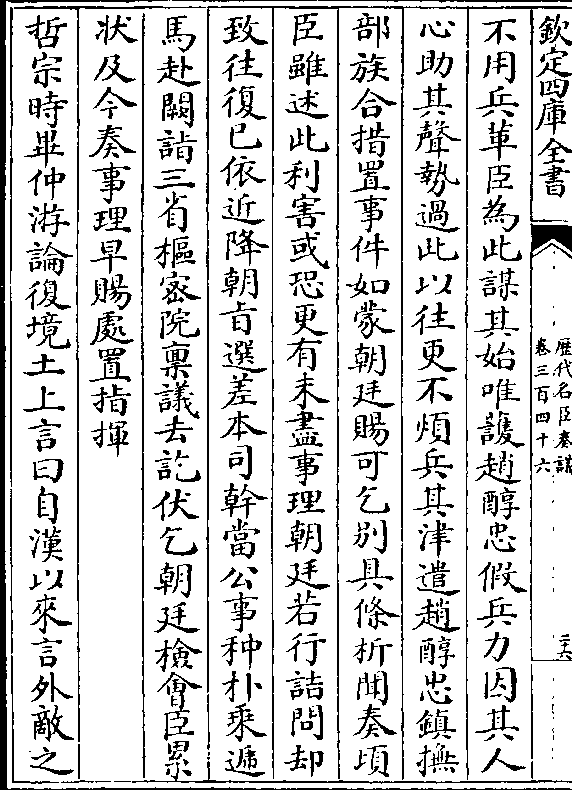 欽定四庫全書
歷代名臣奏議
卷三百四十六
二六
不用兵革臣為此謀其始唯護趙醇忠假兵力因其人
心助其聲勢過此以往更不煩兵其津遣趙醇忠鎮撫
部族合措置事件如蒙朝廷賜可乞别具條析聞奏頃
臣雖述此利害或恐更有未盡事理朝廷若行詰問却
致往復已依近降朝旨選差本司幹當公事种朴乘遞
馬赴闕詣三省樞密院禀議去訖伏乞朝廷檢會臣累
狀及今奏事理早賜處置指揮
哲宗時畢仲游論復境土上言曰自漢以來言外敵之